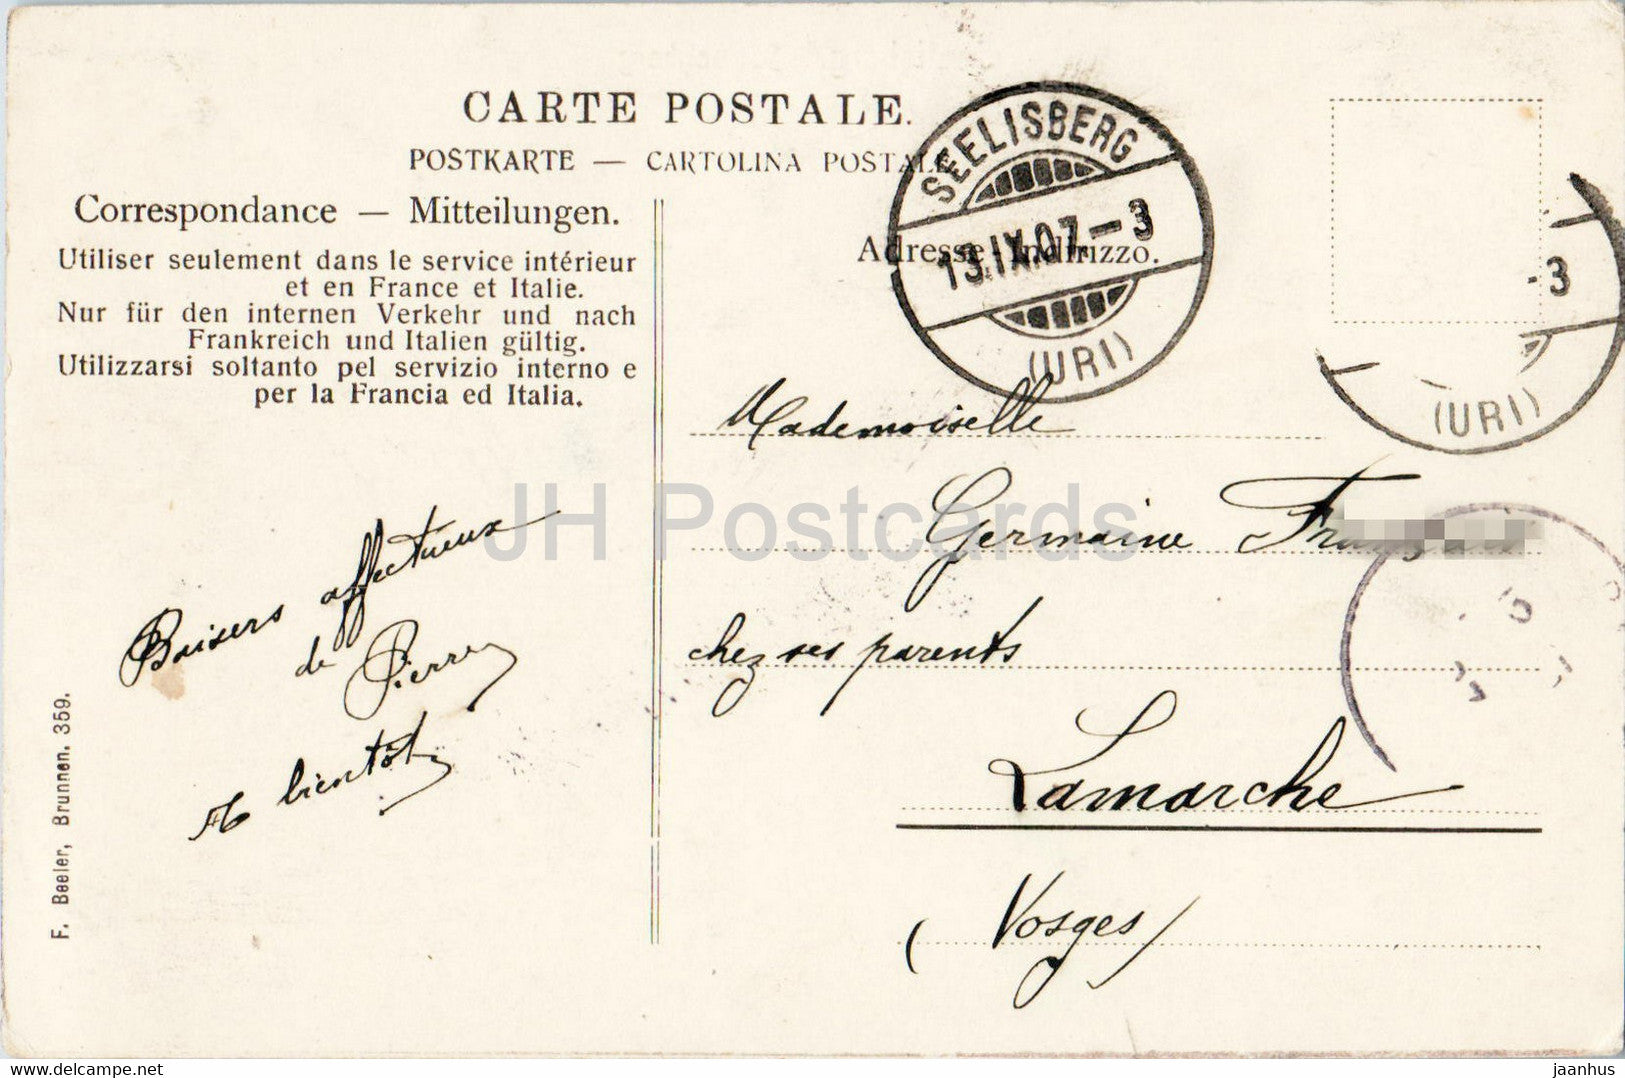 CARTE POSTALE.
POSTKARTE — CARTOLINA POSTALE
Correspondance — Mitteilungen.
Utiliser seulement dans le service intérieur
et en France et Italie.
Nur für den internen Verkehr und nach
Frankreich und Italien gültig.
Utilizzarsi soltanto pel servizio interno e
per la Francia ed Italia.
Adresse-Indirizzo.
SEELISBERG
13.IX.07.–3
(URI)
-3
(URI)
Baisers affectueux
de Pierre
A bientôt
Mademoiselle
Germaine
chez ses parents
Lamarche
(Vosges)
F. Beeler, Brunnen. 359.
JH Postcards
hippostcard.com
jaanhus